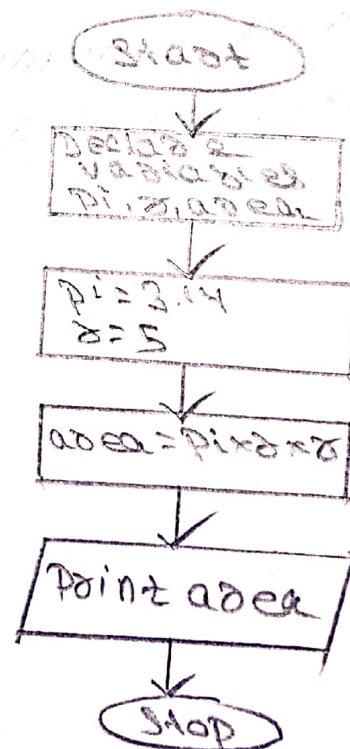 Start
Declare
variables
pi, r, area.
pi = 3.14
r = 5
area = pi × r × r
Print area
Stop